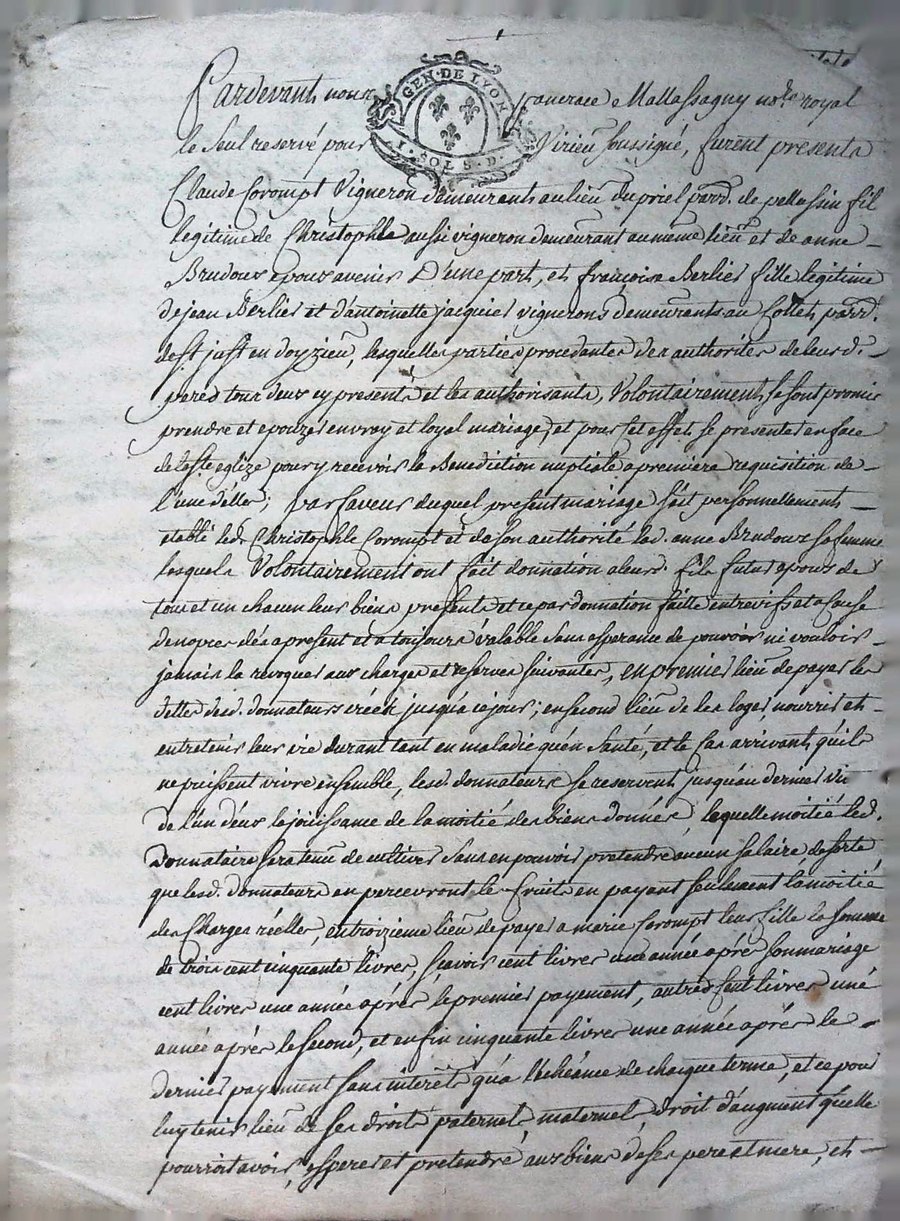 GEN · DE LYON
1 · SOL 8 · D
Pardevant nous pancrace Mallassagny no.re royal
le Seul reservé pour Virieu soussigné, furent presents
Claude Corompt Vigneron demeurant au lieu du priel parr. de pellassin fil
legitime de Christophle aussi vigneron demeurant au même lieu et de anne
Brudoux epoux avenir D'une part, et françoise Berlier fille legitime
de jean Berlier et d'antoinette jacquier vignerons demeurants au Collet parr.
de st just en doyzieu, lesquelles parties procedantes des authorités de leurs d.
peres tous deux cy presents et les authorisants, Volontairement se sont promis
prendre et epouzer en vray et loyal mariage, et pour cet effet se presenter en face
de la ste eglize pour y recevoir le Benediction nuptiale a premiere requisition de
l'une d'elles ; par faveur duquel present mariage s'est personnellement
etablé led. Christophle Corompt et de son authorité lad. anne Brudoux sa femme
lesquels Volontairement ont fait donnation a leurd. fils futur epoux de
tous et un chacun leurs biens presents et ce par donnation faite entrevifs et a cause
de nopces dés a present et a toujours valable sans esperance de pouvoir ni vouloir
jamais la revoquer aux charges et reserves suivantes, en premier lieu de payer les
dettes desd. donnateurs créés jusqu'a ce jour ; en second lieu de les loger, nourrir et
entretenir leur vie durant tant en maladie qu'en Santé, et le Cas arrivant qu'ils
ne puissent vivre ensemble, lesd. donnateurs se reservent jusqu'au dernier vi
de l'un d'eux le jouissance de la moitié des biens donnés, laquelle moitié led.
Donnataire sera tenu de cultiver sans en pouvoir pretendre aucun salaire de sorte
que lesd. donnateurs en percevront les fruits en payant seulement la moitié
des Charges réelles, en troizieme lieu de payer a marie Corompt leur fille la somme
de trois cent cinquante livres, sçavoir cent livres une année aprés son mariage
cent livres une année aprés le premier payement, autres cent livres une
année aprés le second, et enfin cinquante livres une année aprés le
dernier payement sans interêts qu'a l'échéance de chaque terme, et ce pour
luy tenir lieu de ses droits paternel, maternel, droit d'augment qu'elle
pourroit avoir, esperer et pretendre aux biens de ses pere et mere, et